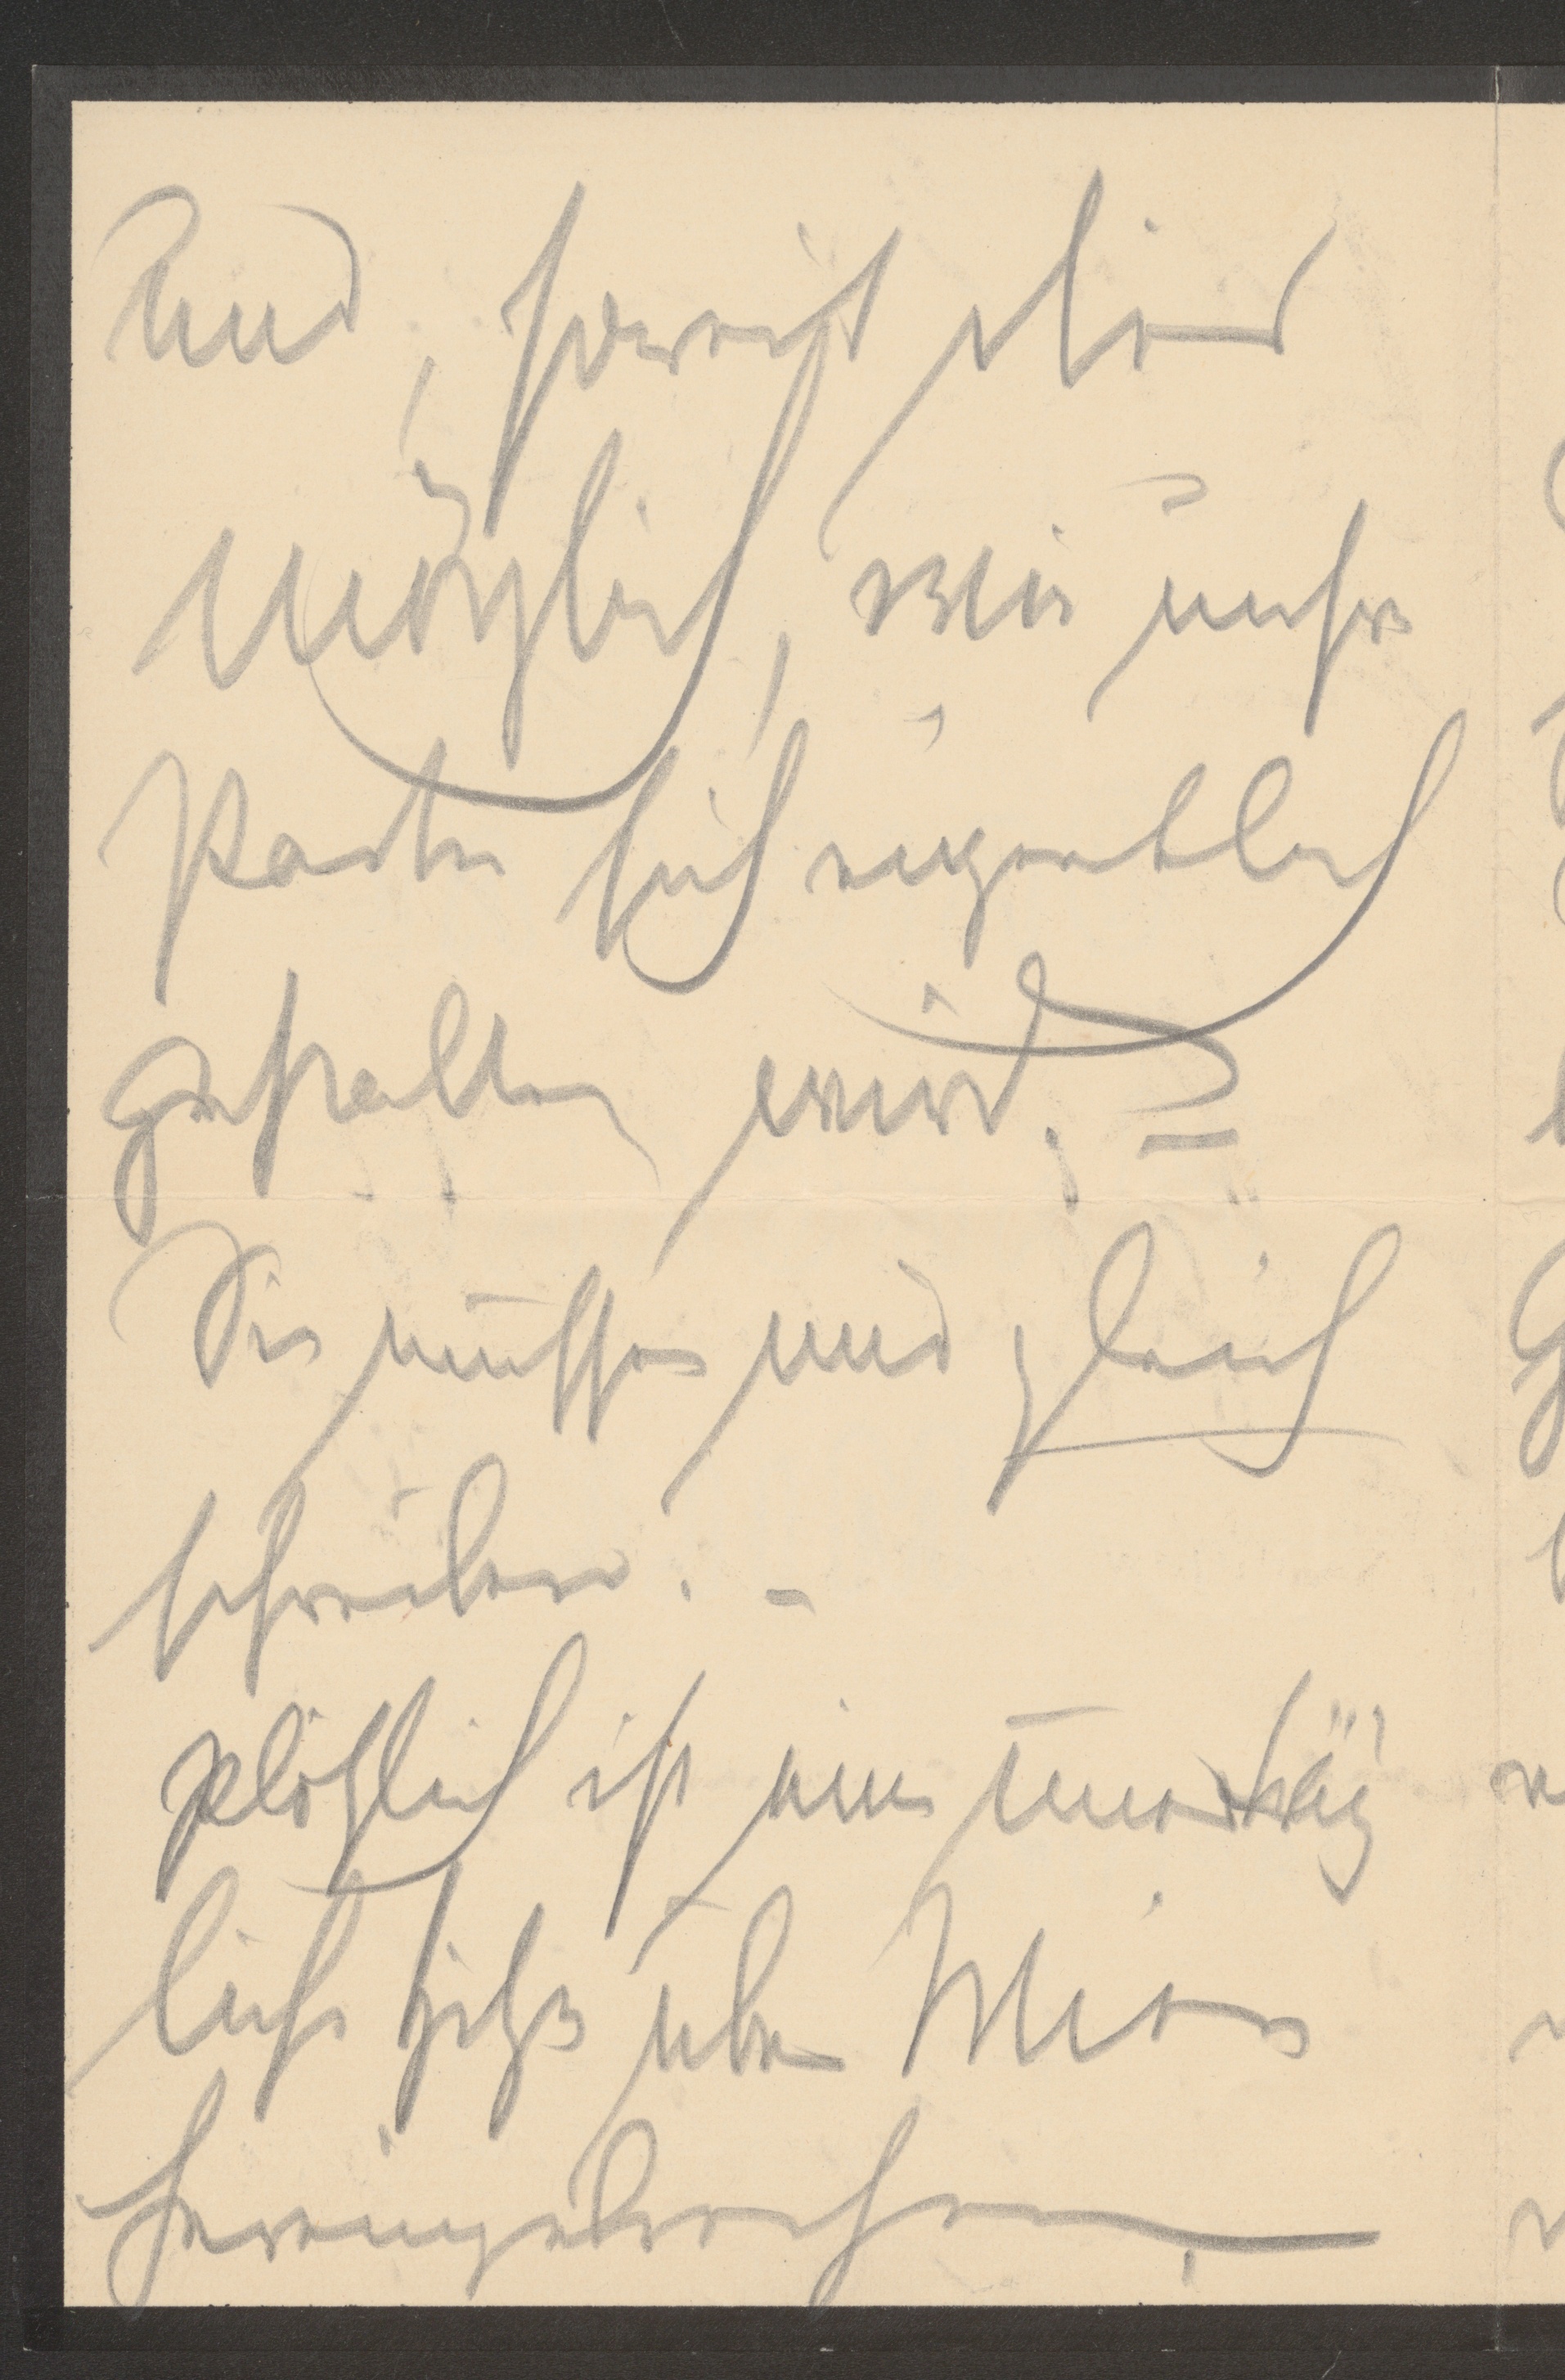 Und, soweit Ihnen
möglich, wie unser
Paster sich eigentlich
gestalten wird. =
Sie müssen mir gleich
schreiben. -
plötzlich ist eine unerträg
liche Hitze über Wien
hereingebrochen,